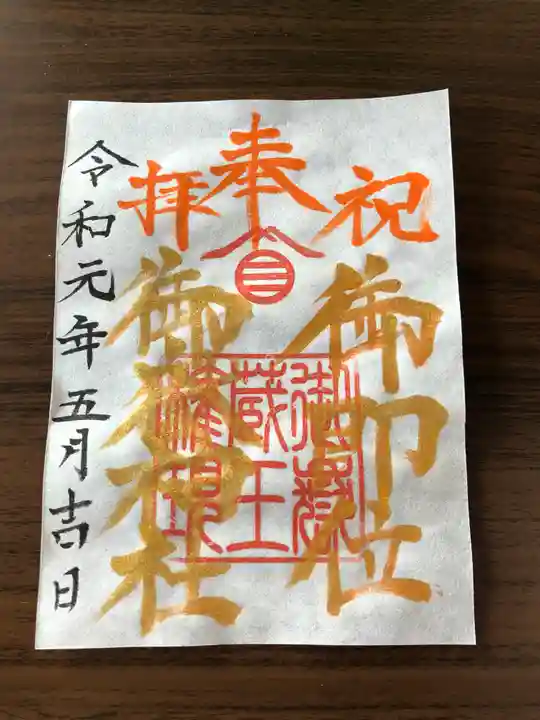 祝
御即位
奉
三
拝
御嶽神社
御嶽
蔵王
権現
令和元年五月吉日